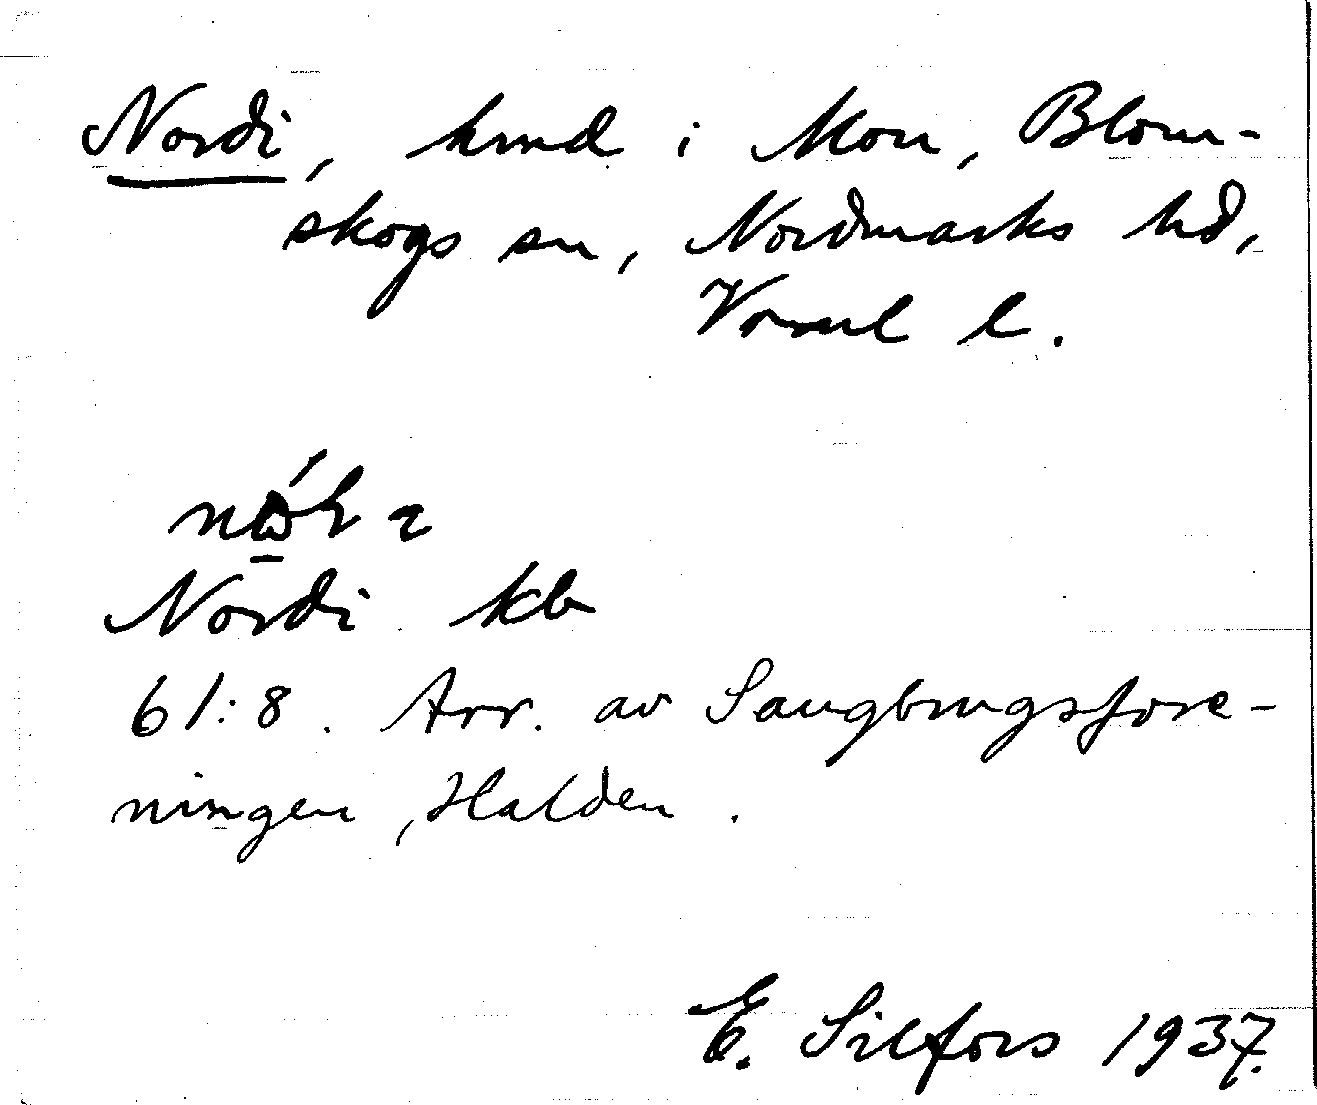 Nordi, hmd i Mon, Blom-
skogs sn, Nordmarks hd,
Värml l.
Nordi kb
61:8. Arr. av Saugbrugsfore-
ningen, Halden.
E. Silfors 1937.